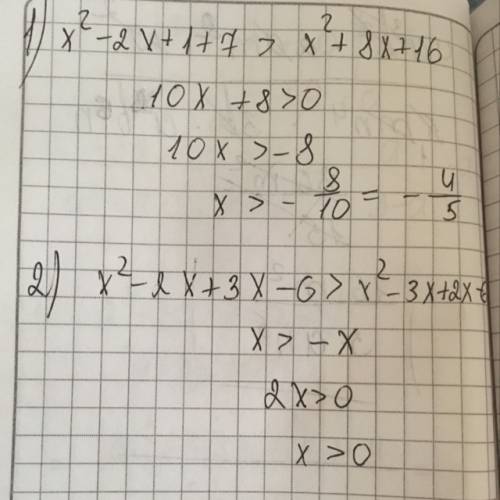 1) x² - 2x + 1 + 7 > x² + 8x + 16
10x + 8 > 0
10x > -8
x > - 8/10 = - 4/5
2) x² - 2x + 3x - 6 > x² - 3x + 2x - 6
x > -x
2x > 0
x > 0